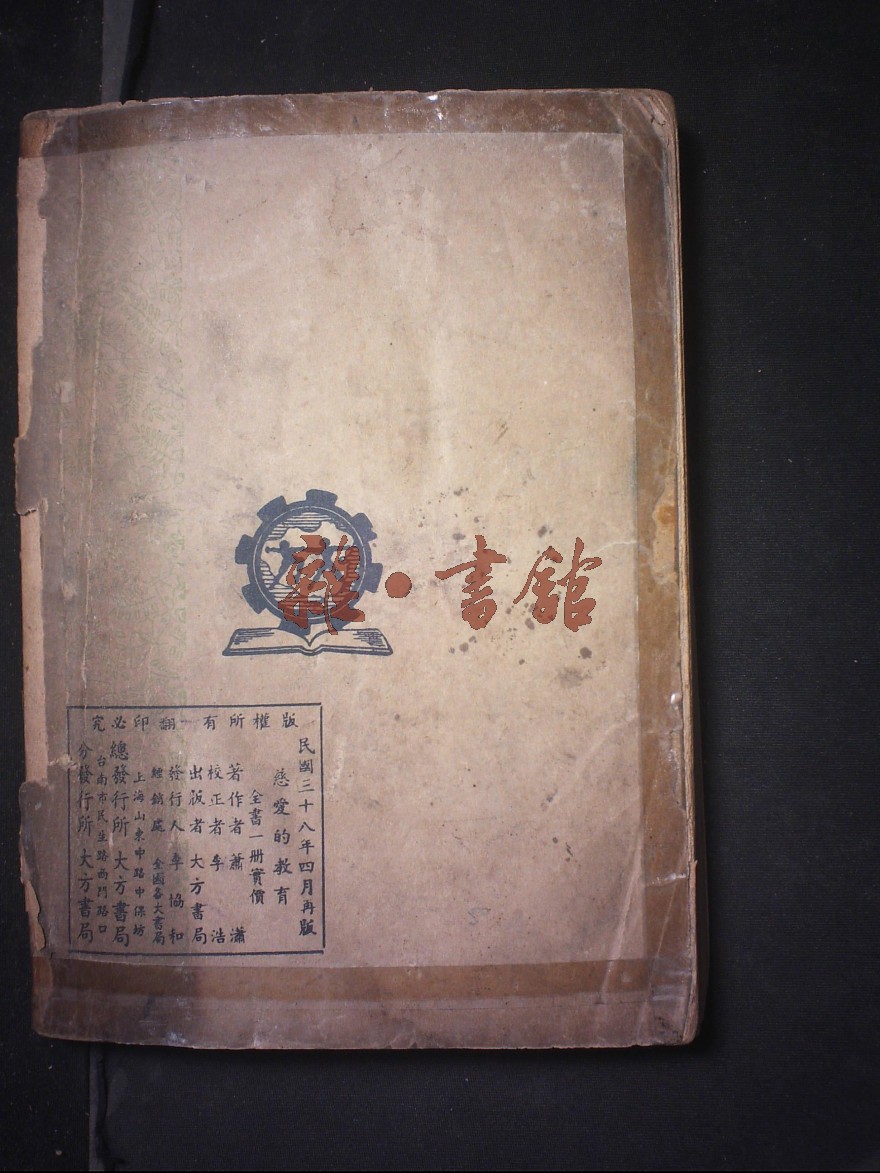 版權所有 翻印必究
民國三十八年四月再版
慈愛的教育
全書一册實價
著作者 蕭瀟
校正者 李浩
出版者 大方書局
發行人 李協和
經銷處 全國各大書局
上海山東中路中保坊
總發行所 大方書局
台南市民生路西門路口
分發行所 大方書局
雜·書館